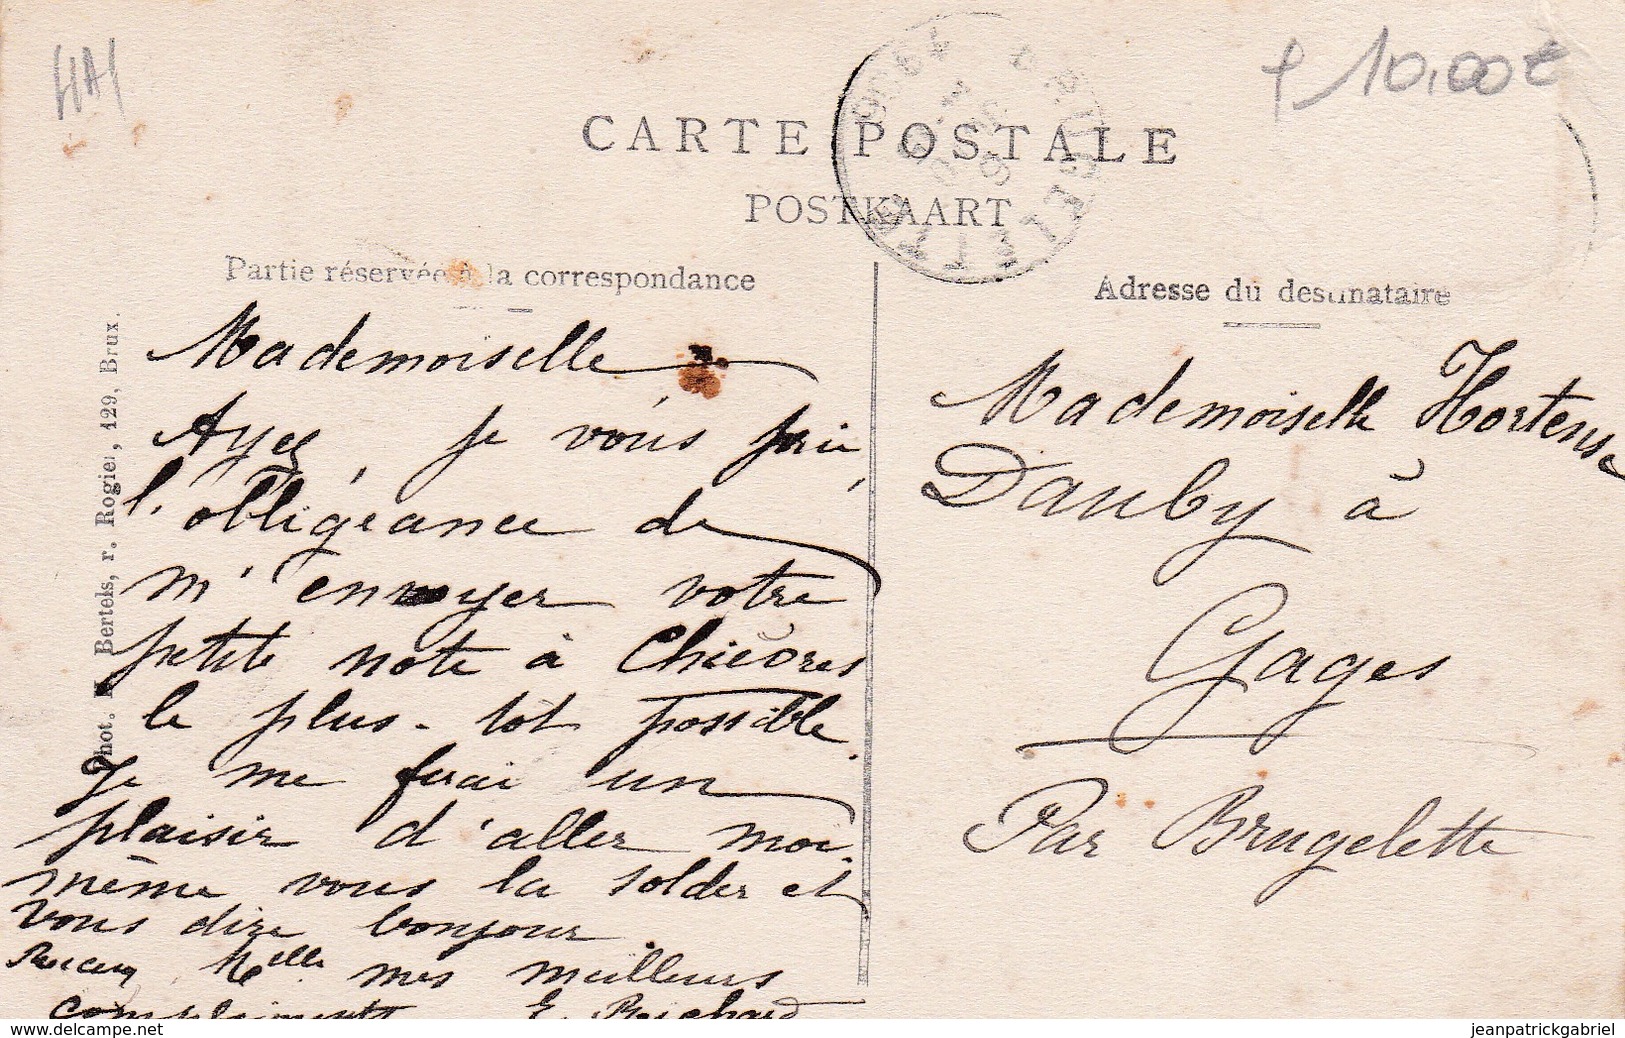 HA
10,00€
CARTE POSTALE
POSTKAART
BRUGELETTE
Partie réservée à la correspondance
Adresse du destinataire
Phot. Bertels, r. Rogier, 129, Brux.
Mademoiselle
Ayez, je vous prie,
l'obligeance de
m'envoyer votre
petite note à Chièvres
le plus-tôt possible.
Je me ferai un
plaisir d'aller moi
même vous la solder et
vous dire bonjour
Recevez Melle mes meilleurs
compliments E. Richard
Mademoiselle Hortense
Dauby à
Gages
Par Brugelette
delcampe.net
jeanpatrickgabriel